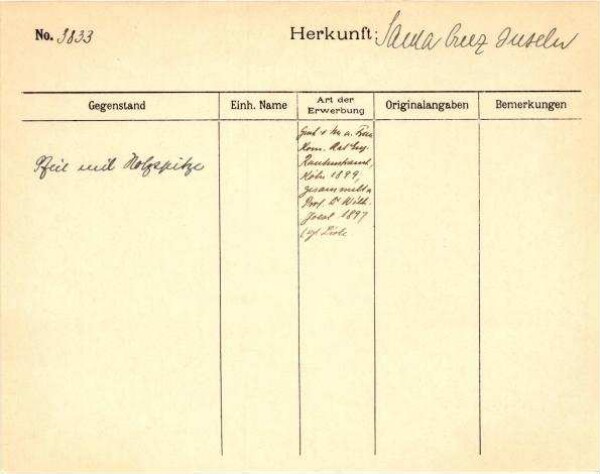 No. 3833
Herkunft: Santa Cruz Inseln
Gegenstand
Einh. Name
Art der
Erwerbung
Originalangaben
Bemerkungen
Pfeil mit Holzspitze
Gesch. v. Kom. Rat Eug.
Rautenstrauch,
Köln 1899,
gesammelt v.
Prof. Dr Wilh.
Joest 1897